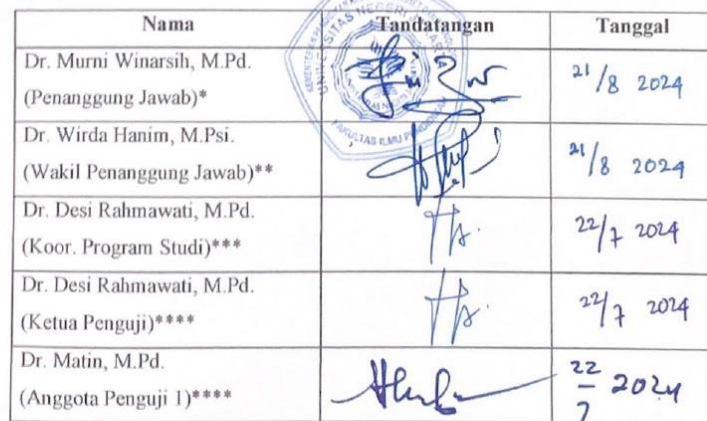 Nama Tandatangan Tanggal
Dr. Murni Winarsih, M.Pd.
(Penanggung Jawab)*
21/8 2024
Dr. Wirda Hanim, M.Psi.
(Wakil Penanggung Jawab)**
21/8 2024
Dr. Desi Rahmawati, M.Pd.
(Koor. Program Studi)***
22/7 2024
Dr. Desi Rahmawati, M.Pd.
(Ketua Penguji)****
22/7 2024
Dr. Matin, M.Pd.
(Anggota Penguji 1)****
22/7 2024
UNIVERSITAS NEGERI JAKARTA
FAKULTAS ILMU PENDIDIKAN